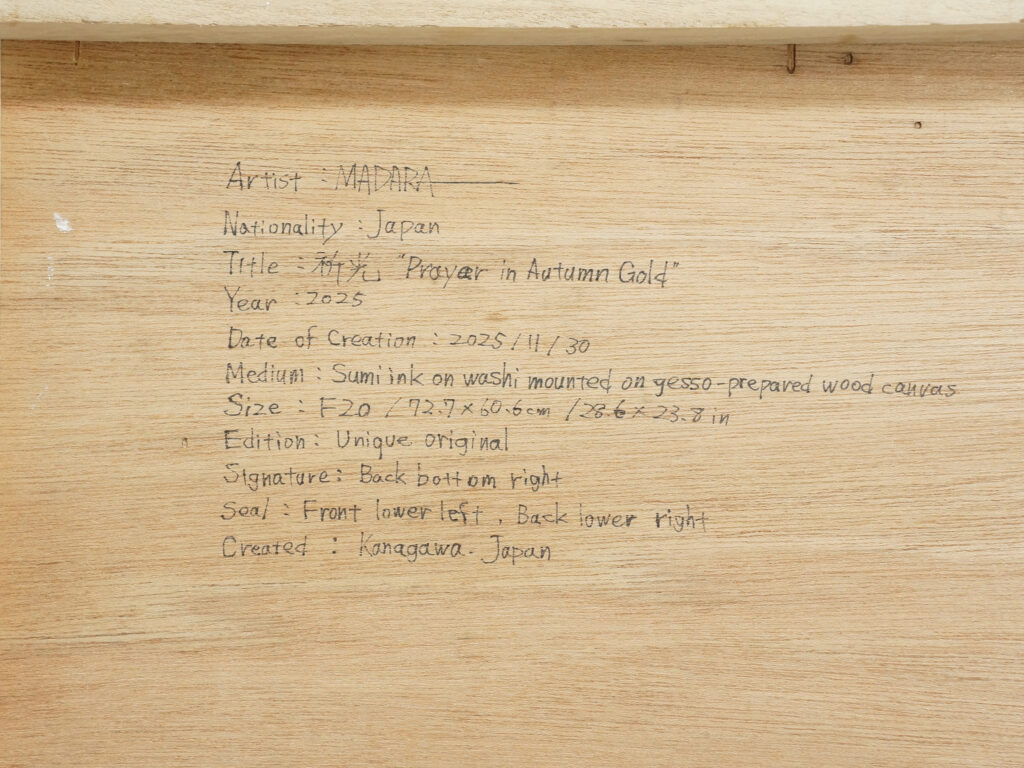 Artist : MADARA
Nationality : Japan
Title : 祈光 "Prayer in Autumn Gold"
Year : 2025
Date of Creation : 2025 / 11 / 30
Medium : Sumi ink on washi mounted on gesso-prepared wood canvas
Size : F20 / 72.7 × 60.6cm / 28.6 × 23.8 in
Edition : Unique original
Signature : Back bottom right
Seal : Front lower left , Back lower right
Created : Kanagawa. Japan